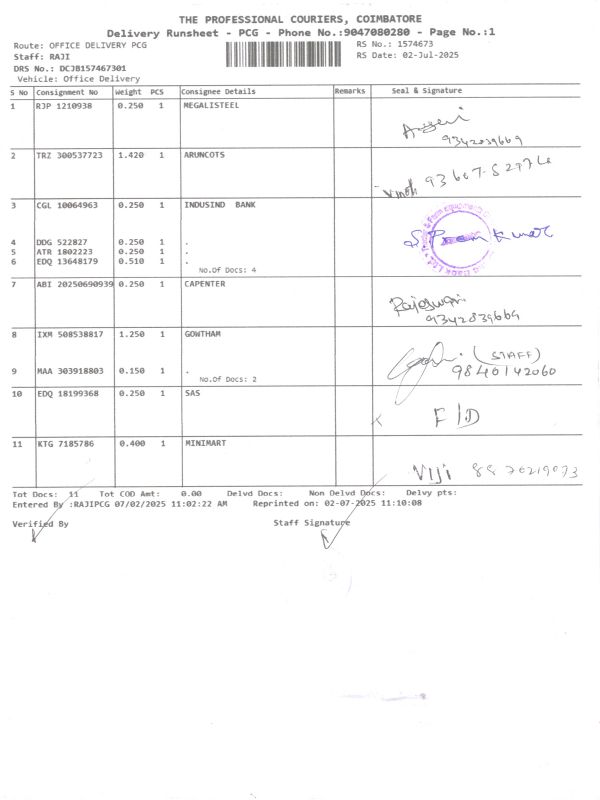 THE PROFESSIONAL COURIERS, COIMBATORE
Delivery Runsheet - PCG - Phone No.:9047080280 - Page No.:1
Route: OFFICE DELIVERY PCG RS No.: 1574673
Staff: RAJI RS Date: 02-Jul-2025
DRS No.: DCJB157467301
Vehicle: Office Delivery
S No Consignment No Weight PCS Consignee Details Remarks Seal & Signature
1 RJP 1210938 0.250 1 MEGALISTEEL
9342839669
2 TRZ 300537723 1.420 1 ARUNCOTS
3 CGL 10064963 0.250 1 INDUSIND BANK
S Prem Kumar
4 DDG 522827 0.250 1 .
5 ATR 1802223 0.250 1 .
6 EDQ 13648179 0.510 1 .
No.Of Docs: 4
7 ABI 20250690939 0.250 1 CAPENTER
Rajeswari
9342839669
8 IXM 508538817 1.250 1 GOWTHAM
(STAFF)
9840142060
9 MAA 303918803 0.150 1 .
No.Of Docs: 2
10 EDQ 18199368 0.250 1 SAS
F/D
11 KTG 7185786 0.400 1 MINIMART
VIJI
Tot Docs: 11 Tot COD Amt: 0.00 Delvd Docs: Non Delvd Docs: Delvy pts:
Entered By :RAJIPCG 07/02/2025 11:02:22 AM Reprinted on: 02-07-2025 11:10:08
Verified By Staff Signature